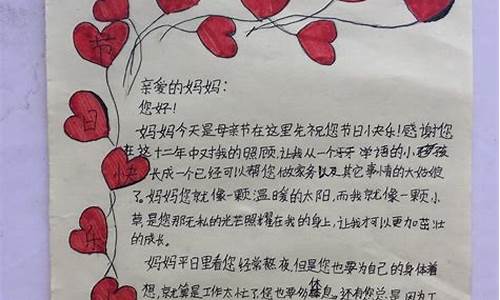 节
日
快
乐
亲爱的妈妈：
您好！
妈妈今天是母亲节在这里先祝您节日快乐！感谢您
在这十二年中对我的照顾，让我从一个牙牙学语的小孩
长成一个已经可以帮您做家务以及其它事情的大姑娘
了。妈妈您就像一颗温暖的太阳，而我就像一颗小
草，是您那无私的光芒照耀在我的身上，让我才可以更加茁壮
的成长。
妈妈平日里看您经常熬夜，但是您也要为自己的身体着
想，就算是工作太忙了您也要勿休息，还有您总是因为工